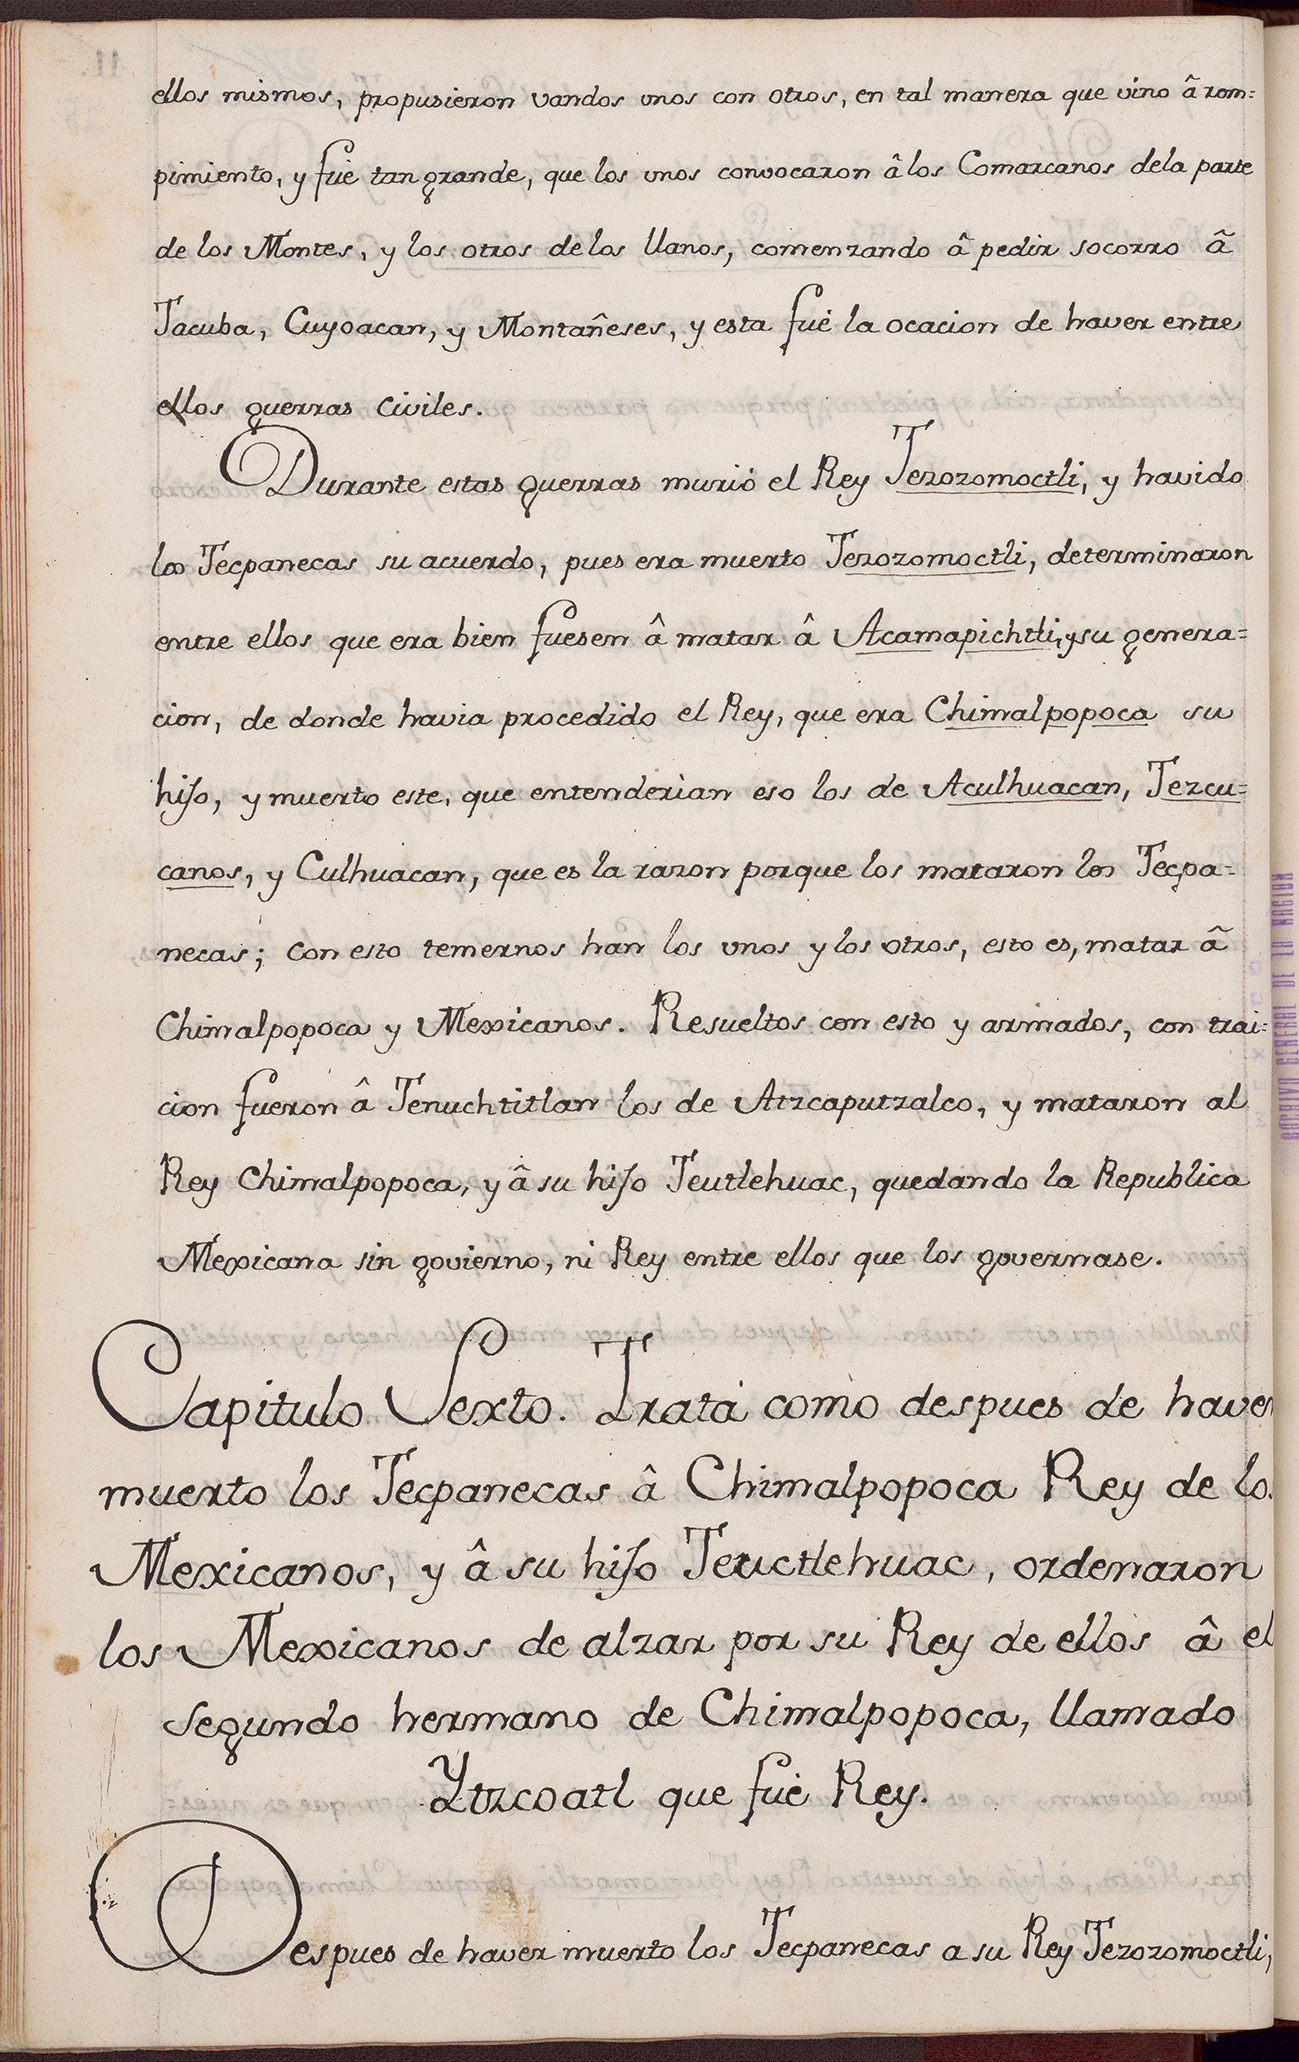 ellos mismos, propusieron vandos vnos con otros, en tal manera que vino â rom=
pimiento, y fué tan grande, que los vnos convocaron â los Comarcanos dela parte
de los Montes, y los otros delos llanos, comenzando â pedir socorro â
Tacuba, Cuyoacan, y Montañeses, y esta fué la ocacion de haver entre
ellos guerras civiles.
Durante estas guerras murió el Rey Tezozomoctli, y havido
los Tecpanecas su acuerdo, pues era muerto Tezozomoctli, determinaron
entre ellos que era bien fuesen â matar â Acamapichtli, y su genera=
cion, de donde havia procedido el Rey, que era Chimalpopoca su
hijo, y muerto este, que entenderìan eso los de Aculhuacan, Tezcu=
canos, y Culhuacan, que es la razon porque los mataron los Tecpa=
necas; con esto temernos han los vnos y los otros, esto es, matar â
Chimalpopoca y Mexicanos. Resueltos con esto y armados, con trai=
cion fueron â Tenuchtitlan los de Atzcaputzalco, y mataron al
Rey Chimalpopoca, y â su hijo Teutlehuac, quedando la Republica
Mexicana sin govierno, ni Rey entre ellos que los governase.
Capitulo Sexto. Trata como despues de haver
muerto los Tecpanecas â Chimalpopoca Rey de los
Mexicanos, y â su hijo Teuctlehuac, ordenaron
los Mexicanos de alzar por su Rey de ellos â el
segundo hermano de Chimalpopoca, llamado
Ytzcoatl que fué Rey.
Despues de haver muerto los Tecpanecas a su Rey Tezozomoctli,
ARCHIVO GENERAL DE LA NACION